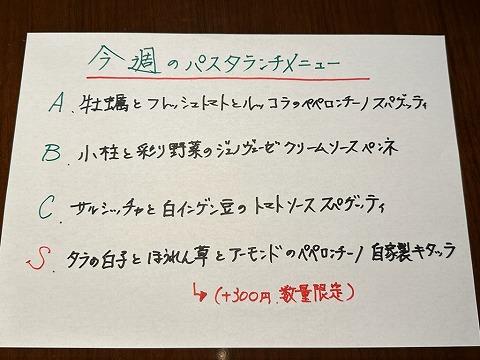 今週のパスタランチメニュー
A. 牡蠣とフレッシュトマトとルッコラのペペロンチーノ スパゲッティ
B. 小柱と彩り野菜のジェノヴェーゼ クリームソース ペンネ
C. サルシッチャと白インゲン豆のトマトソース スパゲッティ
S. タラの白子とほうれん草とアーモンドのペペロンチーノ 自家製キタッラ
↳(+300円 数量限定)